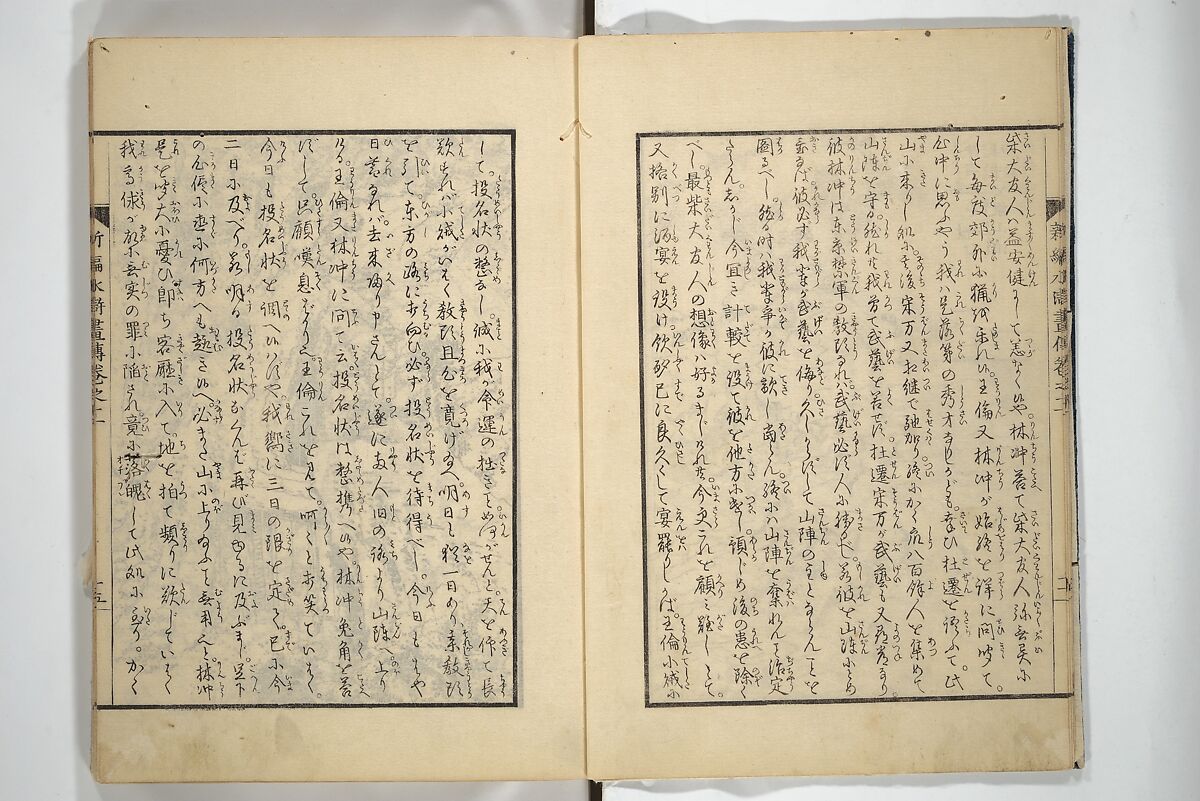 柴大友人ハ益安健にして恙なくいや林冲荅て柴大友人弥無異に
して毎度郊外に猟被来れハ王倫又林冲が始終を詳に問听て
心中に思ふやう我ハ是落第の秀才なりしがども幸ひ杜遷を語ふて此
山に来りし処に其後宋万又相継で馳加り終にかく七八百餘人を集めて
山陣を守る然れ共我曽て武藝を善せず杜遷宋万が武藝も又
彼林冲は東京禁軍の教頭なれバ武藝必ず人に
バ彼必ず我輩が武藝を侮り久しからずして山陣の主とならんことを
圖るべし然る時ハ我輩争か彼に敵し尚らん終にハ山陣を棄れんて治定
たらんしかじ今宜き計較を設て彼を他方に出し預じめ後の患を除く
べし最柴大友人の想像ハ好るまじけれ共今更これを顧み難しとて
又格別に酒宴を設け飲酌已に良久して宴罷りしかバ王倫小賊に
新編水滸畫傳巻之十一
して投名状の整なし誠に我が命運の拙きをの何がせんと天を仰て長
歎すれバ小賊がいもく教頭且心を寛げ給へ明日と猶一日あり某教頭
を引て東方の路に打向ひ必ず投名状を待得べし今日もはや
日暮なれバ去来帰り申さんとて遂に両人旧の路より山陣へ上り
ける王倫又林冲に問て云投名状は整携へいや林冲兎角を荅
ずして只顧嘆息ばかりハ王倫これを見て呵々と打笑ていまく
今日も投名状を調へいハずや我嚮に三日の限を定て已に今
二日に及べり若明日投名状なくんば再び見ゆるに及ぶまじ足下
の心任に出て何方へも趣きいへ必ずまた山に上り給ふて無用と林冲
是を听大に憂ひ即ち客廰に入て地を拍て頻りに歎じていまく
我高俅が為に無実の罪に陥され竟に落魄して此処に至りかく
新編水滸畫傳巻之十一
十五